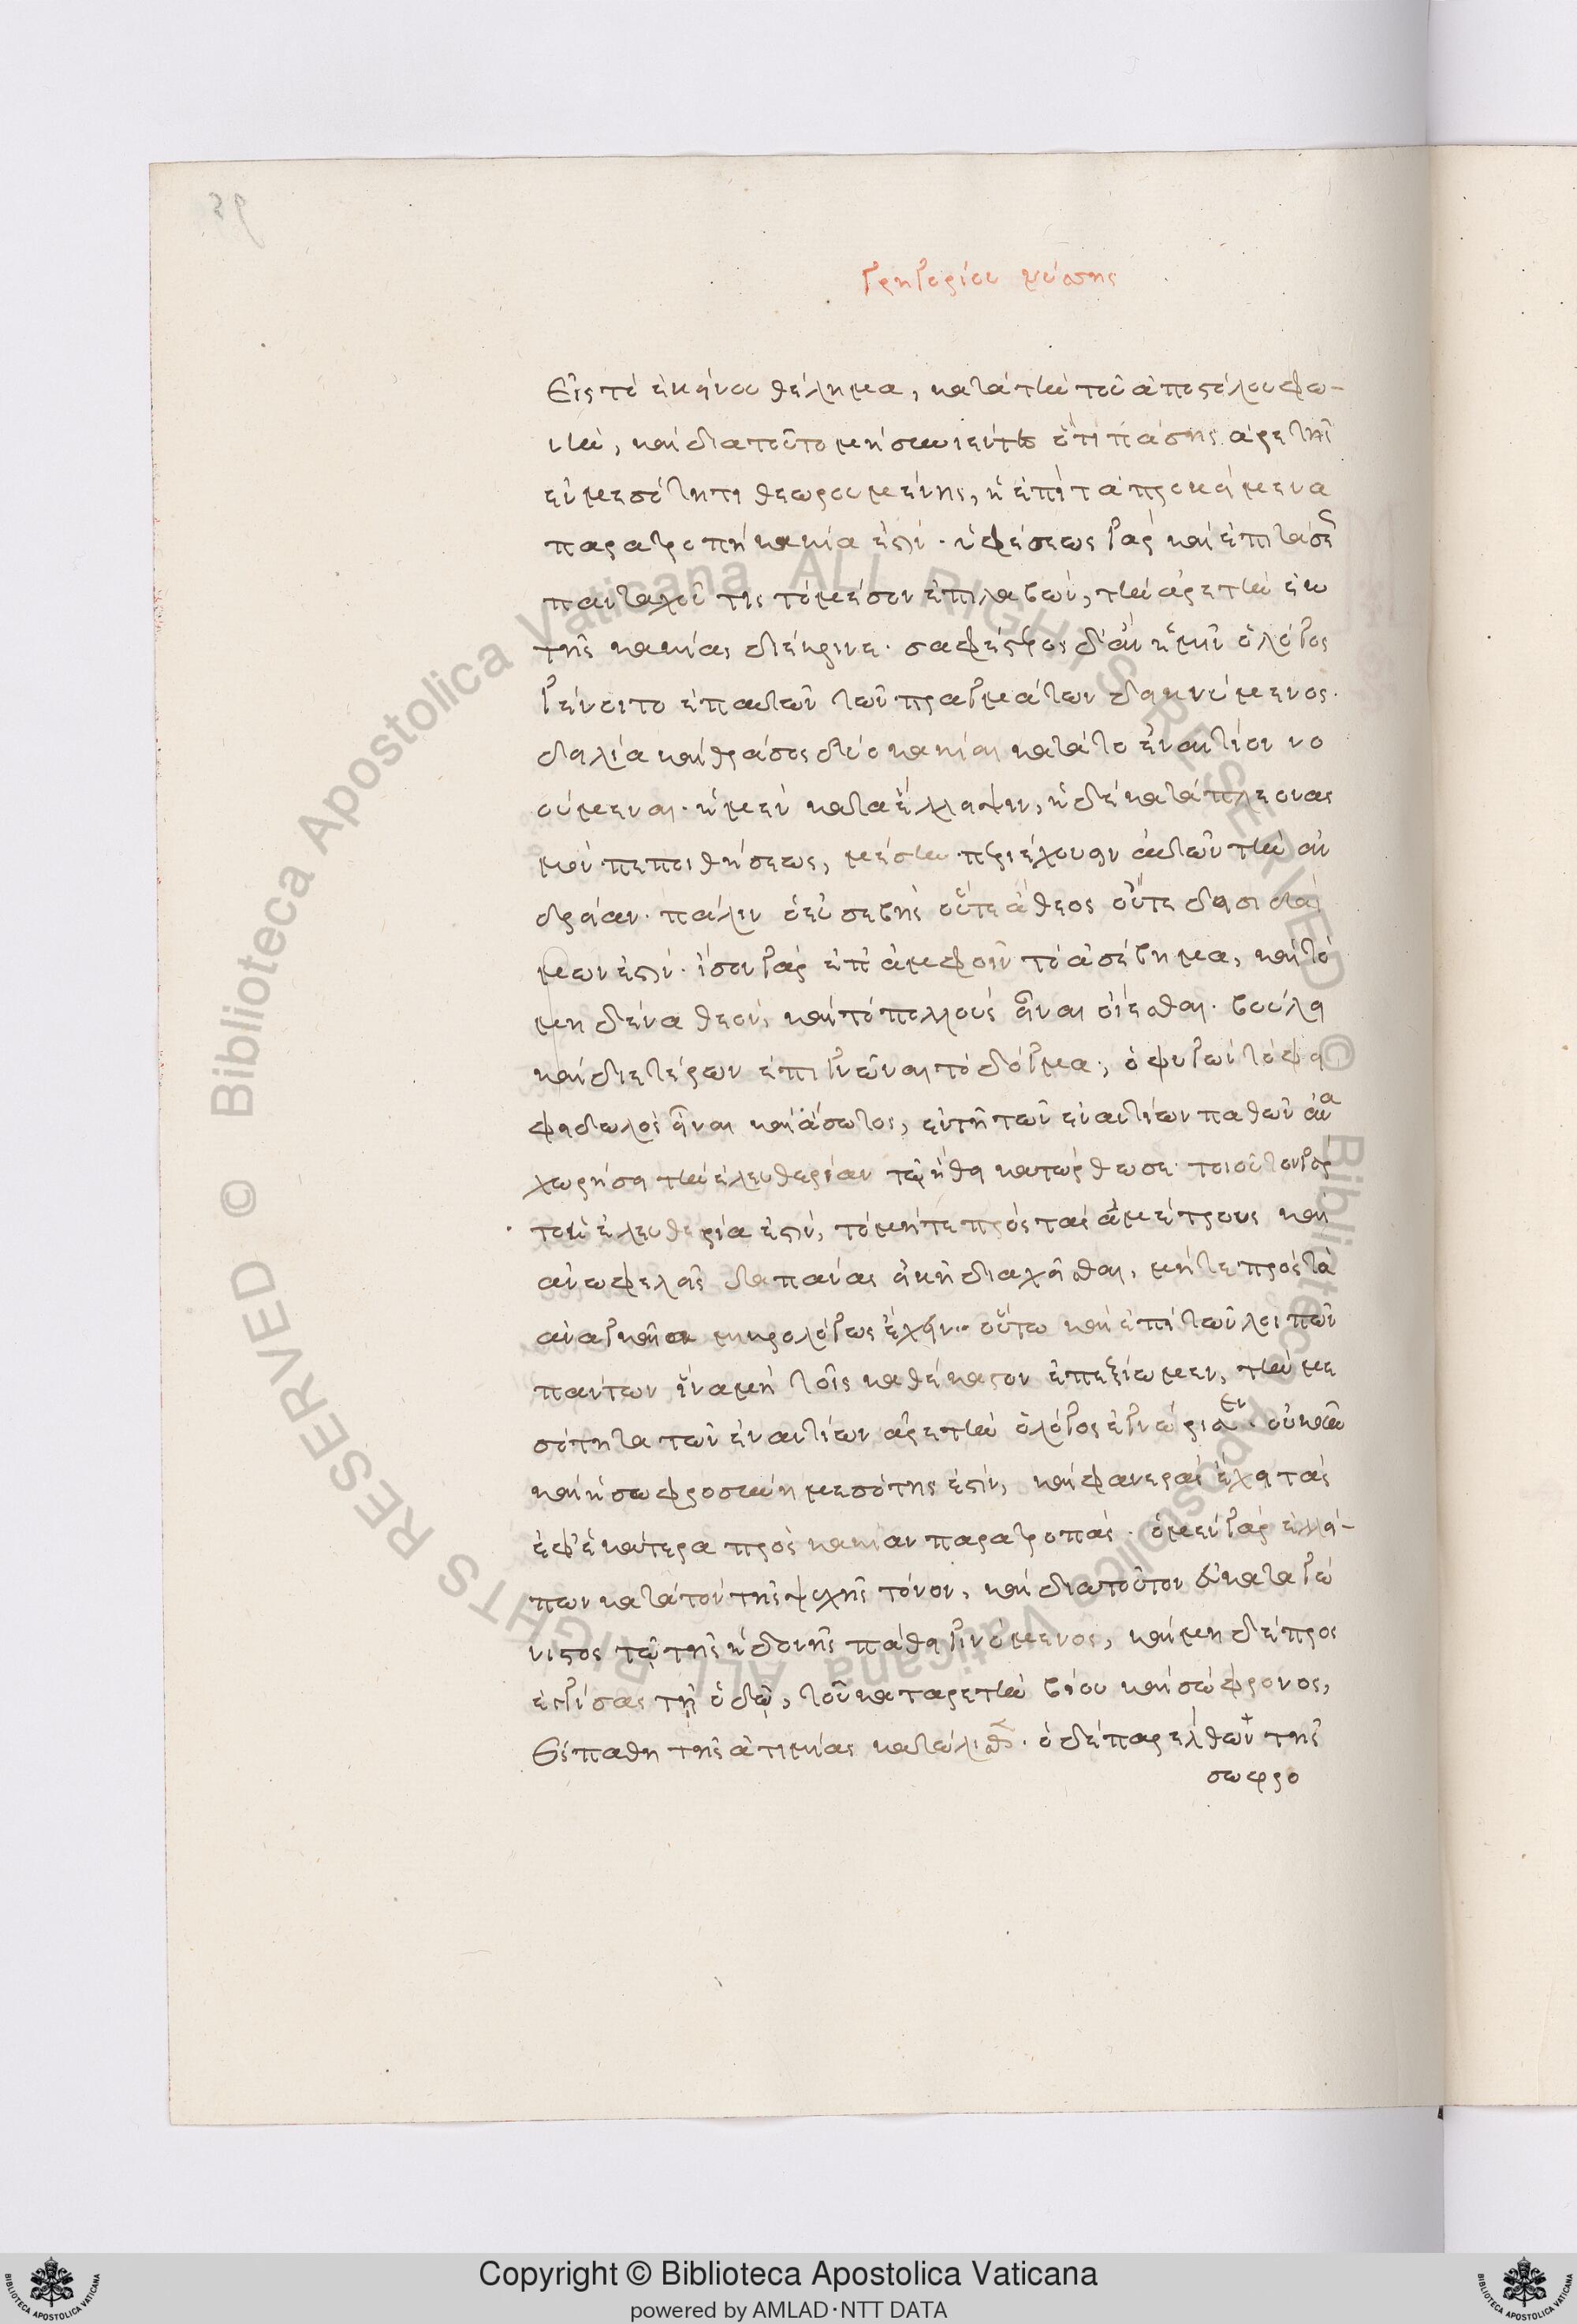 Γρηγορίου νύσσης
Εἰς τὸ ἐκείνου θέλημα, κατὰ τὴν τοῦ ἀποστόλου φω-
νὴν, καὶ διατοῦτο μὴ συνιέντες ὅτι πάσης ἀρετῆς
ἐν μεσότητι θεωρουμένης, ἡ ἐπὶ τὰ προκείμενα
παρατροπὴ κακία ἐστί. ὑφέσεως γὰρ καὶ ἐπιτάσεως
πανταχοῦ τις τὸ μέσον ἐπιλαβὼν, τὴν ἀρετὴν ἐκ
τῆς κακίας διέκρινε. σαφέστερος δ' ἂν ἡμῖν ὁ λόγος
γένοιτο ἐπ' αὐτῶν τῶν πραγμάτων δεικνύμενος.
δειλία καὶ θράσος δύο κακίαι κατὰ τὸ ἐναντίον νο
ούμεναι. ἡ μὲν κατὰ ἔλλειψιν, ἡ δὲ κατὰ πλεονασ
μὸν πεποιθήσεως, μέσην περιέχουσιν αὐτῶν τὴν ἀν
δρείαν. πάλιν ὁ εὐσεβὴς οὔτε ἄθεος οὔτε δεισιδαί
μων ἐστίν. ἴσον γὰρ ἐπ' ἀμφοῖν τὸ ἀσέβημα, καὶ τὸ
μηδένα θεὸν, καὶ τὸ πολλοὺς εἶναι οἴεσθαι. βούλει
καὶ δι' ἑτέρων ἐπιγνῶναι τὸ δόγμα; ὁ φυγὼν τὸ φει
φειδωλὸς εἶναι καὶ ἄσωτος, ἐν τῇ τῶν ἐναντίων παθῶν ἀνα
χωρήσει τὴν ἐλευθερίαν τῷ ἤθει κατώρθωσε. τοιοῦτον γάρ
τοι ἡ ἐλευθερία ἐστὶν, τὸ μήτε πρὸς τὰς ἀμέτρους καὶ
ἀνωφελεῖς δαπάνας εἰκῆ διαχεῖσθαι, μήτε πρὸς τὰ
ἀναγκαῖα μικρολόγως ἔχειν. οὕτω καὶ ἐπὶ τῶν λοιπῶν
πάντων ἵνα μὴ τοῖς καθέκαστον ἐπεξίωμεν, τὴν με
σότητα τῶν ἐναντίων ἀρετὴν ὁ λόγος ἐγνώρισεν. οὐκοῦν
καὶ ἡ σωφροσύνη μεσότης ἐστὶν, καὶ φανερὰς ἔχει τὰς
ἐφ' ἑκάτερα πρὸς κακίαν παρατροπάς. ὁ μὲν γὰρ ἐλλεί-
πων κατὰ τὸν τῆς ψυχῆς τόνον, καὶ διατοῦτον εὐκαταγώ
νιστος τῷ τῆς ἡδονῆς πάθει γινόμενος, καὶ μηδὲ προσ
εγγίσας τῇ ὁδῷ, τοῦ κατ' ἀρετὴν βίου καὶ σώφρονος,
εἰς πάθη τῆς ἀτιμίας κατώλισθεν. ὁ δὲ παρελθὼν τῆς
σωφρο